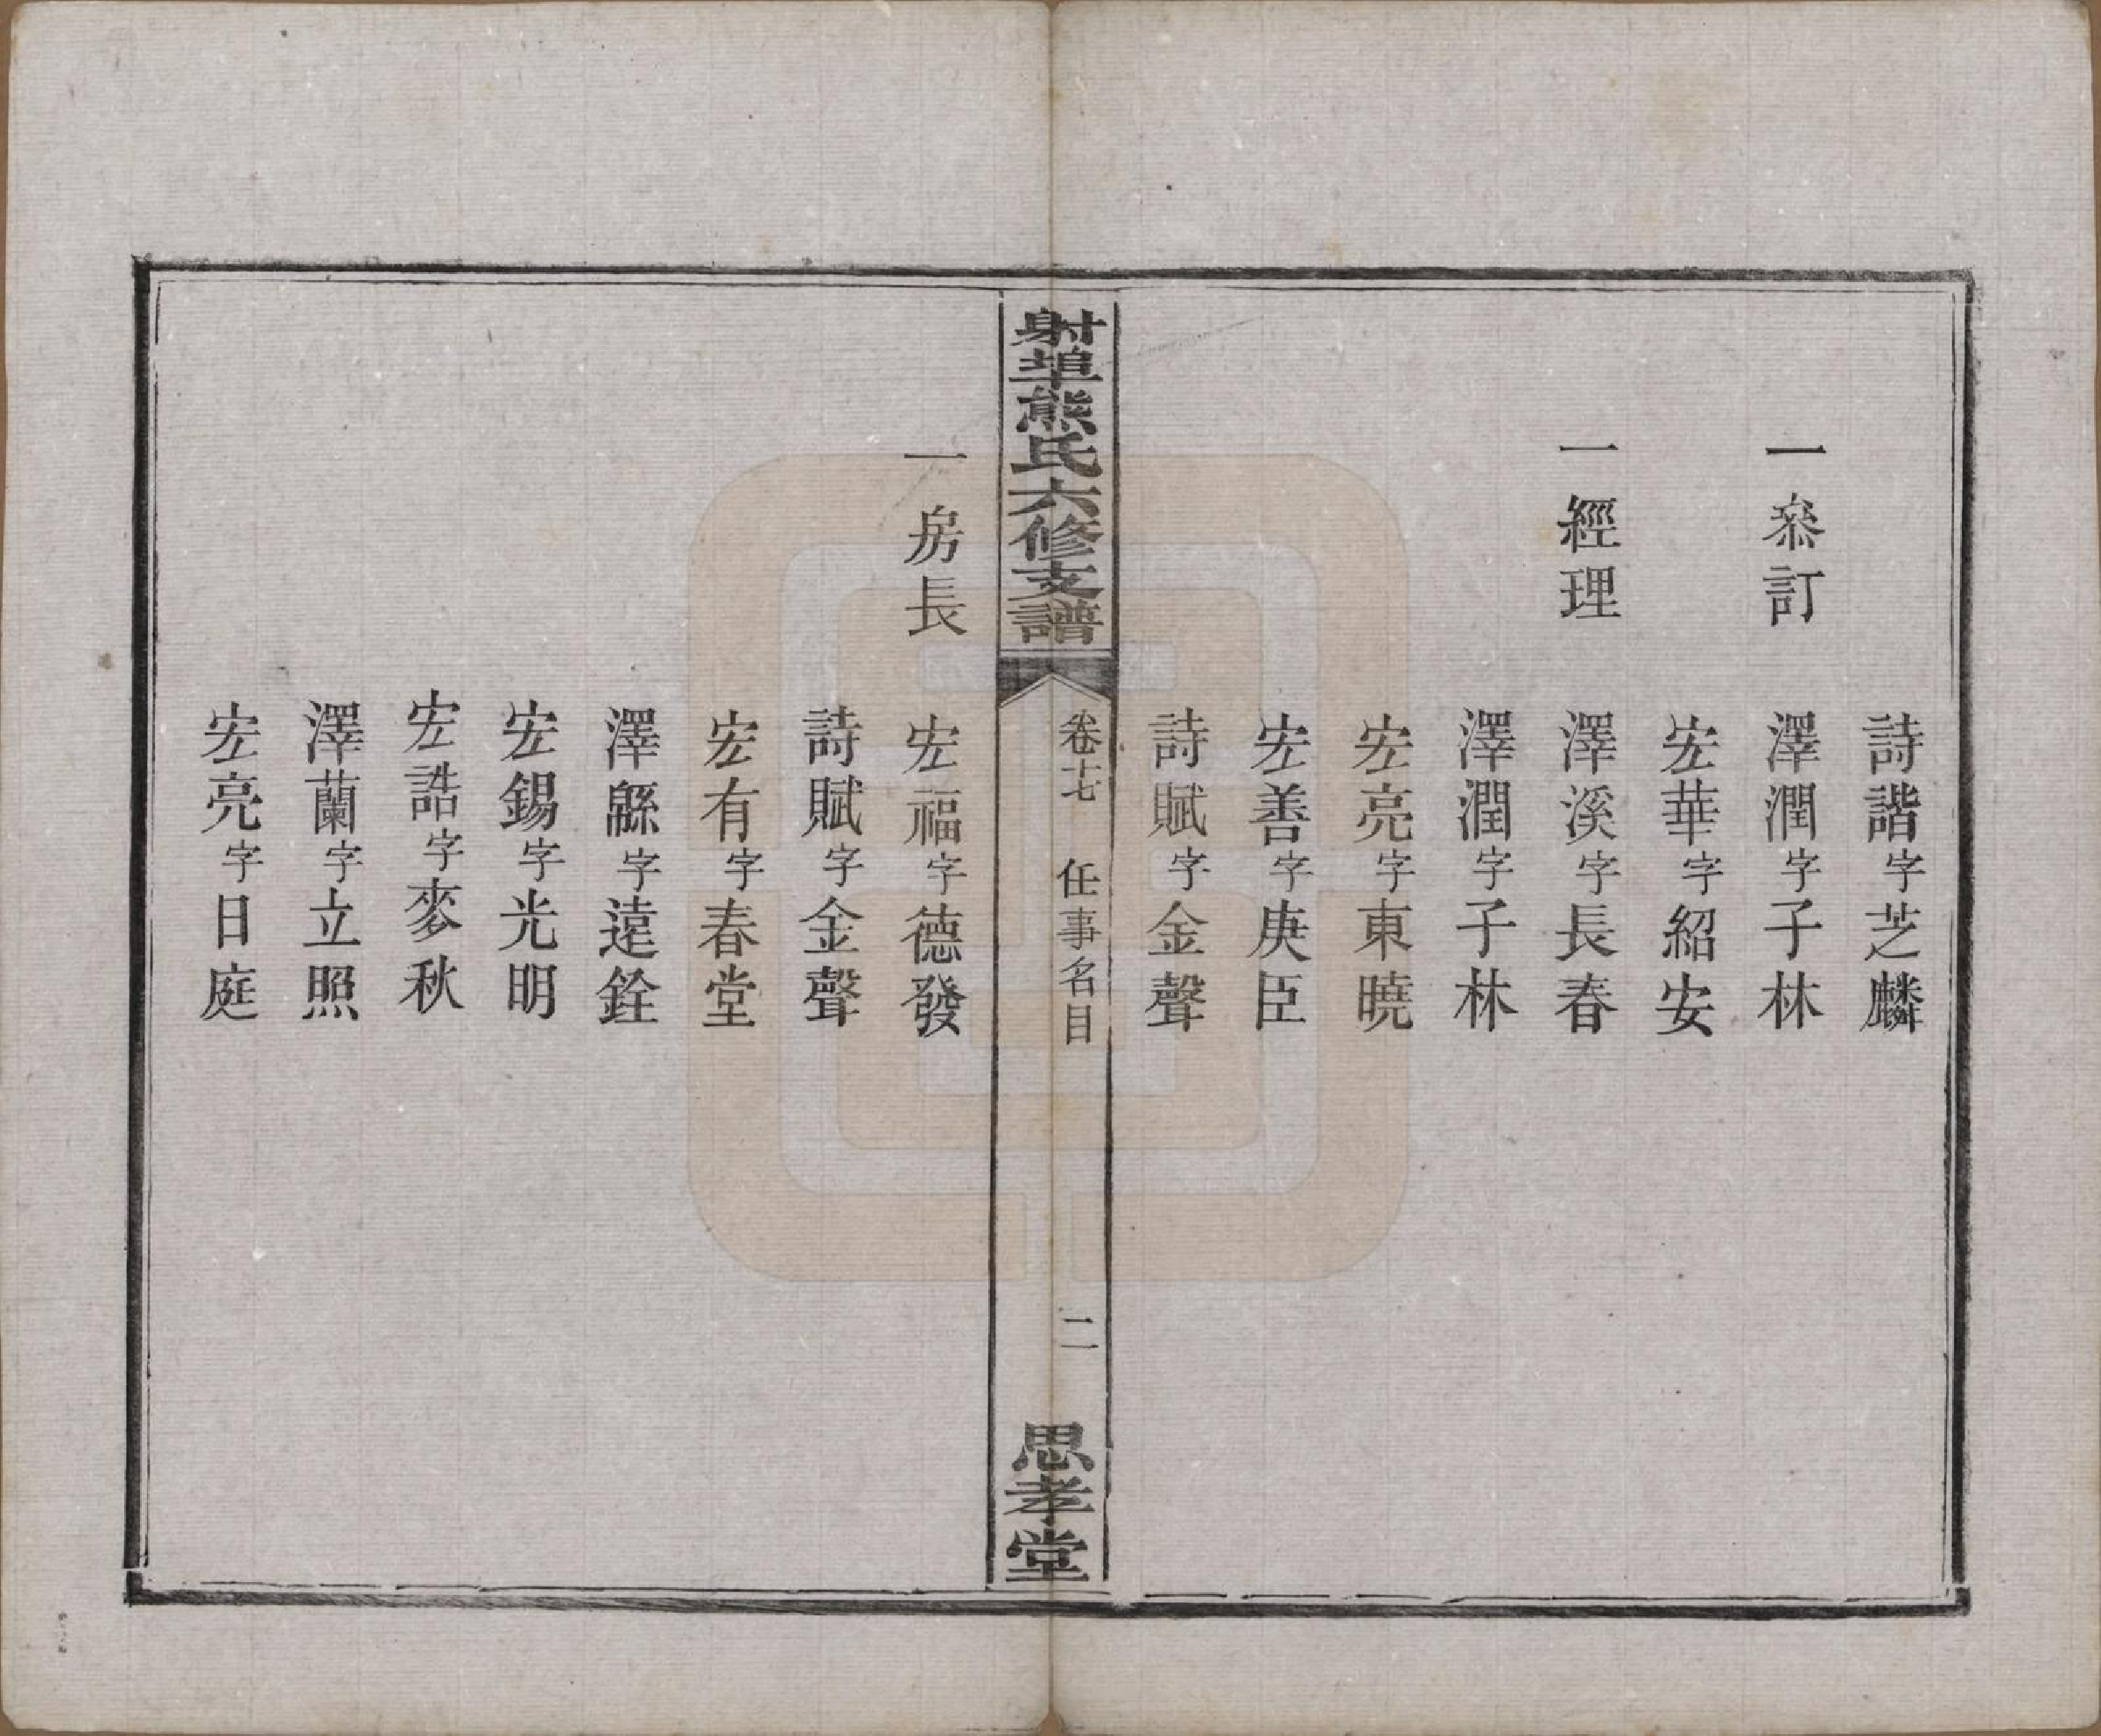 詩諧字芝麟
一叅訂 澤潤字子林
宏華字紹安
一經理 澤溪字長春
澤潤字子林
宏亮字東曉
宏善字庚臣
詩賦字金聲
射埠熊氏六修支譜
卷十七 任事名目 二
思孝堂
一房長 宏福字德發
詩賦字金聲
宏有字春堂
澤緜字遠銓
宏錫字光明
宏誥字麥秋
澤蘭字立照
宏亮字日庭